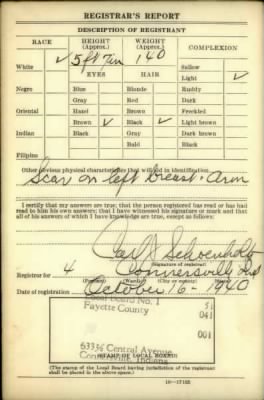 REGISTRAR'S REPORT
DESCRIPTION OF REGISTRANT
RACE HEIGHT (Approx.) WEIGHT (Approx.) COMPLEXION
White ✓ 5 ft 7 in 140 Sallow
EYES HAIR Light ✓
Negro Blue Blonde Ruddy
Gray Red Dark
Oriental Hazel Brown Freckled
Brown ✓ Black ✓ Light brown
Indian Black Gray Dark brown
Bald Black
Filipino
Other obvious physical characteristics that will aid in identification
Scar on left breast & Arm
I certify that my answers are true; that the person registered has read or has had
read to him his own answers; that I have witnessed his signature or mark and that
all of his answers of which I have knowledge are true, except as follows:
Carl J Schoenholtz
(Signature of registrar)
Registrar for 4 Connersville Ind
(Precinct) (Ward) (City or county) (State)
Date of registration October 16 - 1940
Local Board No. 1 51
Fayette County 041
001
633½ Central Avenue
Connersville, Indiana
(STAMP OF LOCAL BOARD)
(The stamp of the Local Board having jurisdiction of the registrant
shall be placed in the above space.)
16—17105